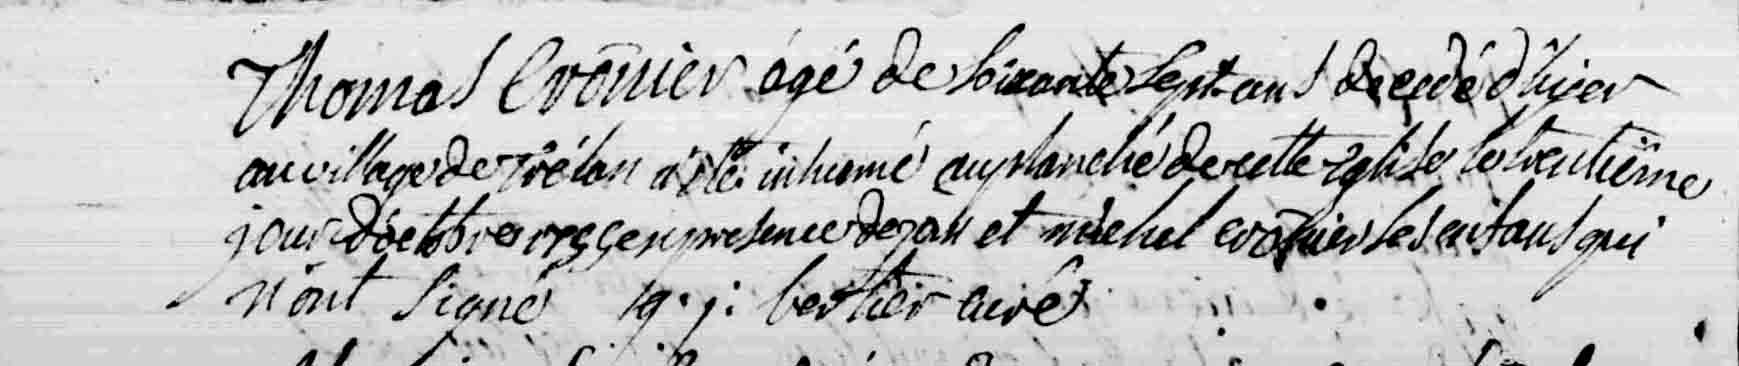 Thomas Crōnier agé de soixante sept ans decedé d'hier
au village de trélan a été inhumé au planché de cette Eglise le trentiême
jour d'octobre en presence de jan et michel crōnier ses enfans qui
n'ont signé j. berthier curé